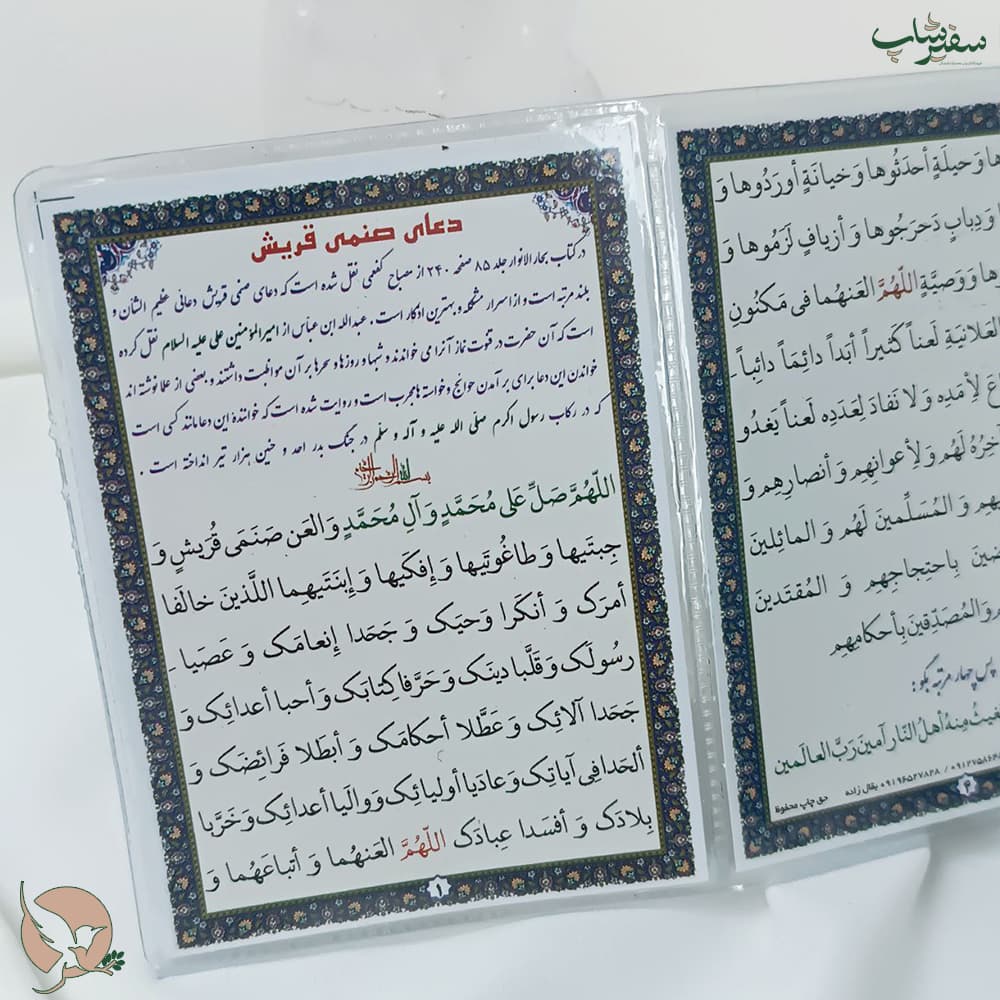 سفیرشاپ
دعای صنمی قریش
در کتاب بحار الانوار جلد ۸۵ صفحه ۲۴۰ از مصباح کفعمی نقل شده است که دعای صنمی قریش دعائی عظیم الشان و
بلند مرتبه است و از اسرار مشکله و بهترین اذکار است . عبدالله ابن عباس از امیرالمؤمنین علی علیه السلام نقل کرده
است که آن حضرت در قنوت نماز آنرا می خواندند و شبها و روزها و سحرها بر آن مواظبت داشتند و بعضی از علما نوشته اند
خواندن این دعا برای بر آمدن حوائج و خواسته ها مجرب است و روایت شده است که خوانندۀ این دعا مانند کسی است
که در رکاب رسول اکرم صلی الله علیه و آله و سلم در جنگ بدر احد و حنین هزار تیر انداخته است .
بسم الله الرحمن الرحیم
اللّهُمَّ صَلِّ عَلی مُحَمَّدٍ وَ آلِ مُحَمَّدٍ وَ العَن صَنَمَی قُرَیشٍ وَ
جِبتَیها وَ طاغُوتَیها وَ إفکَیها وَ إبنَتَیهِما اللَّذَینَ خالَفا
أمرَکَ وَ أنکَرا وَحیَکَ وَ جَحَدا إنعامَکَ وَ عَصَیا
رسُولَکَ وَ قَلَّبا دینَکَ وَ حَرَّفا کِتابَکَ وَ أحبا أعدائِکَ وَ
جَحَدا آلائِکَ وَ عَطَّلا أحکامَکَ وَ أبطَلا فَرائِضَکَ وَ
ألحَدا فِی آیاتِکَ وَ عادَیا أولیائِکَ وَ والَیا أعدائِکَ وَ خَرَّبا
بِلادَکَ وَ أفسَدا عِبادَکَ اللّهُمَّ العَنهُما وَ أتباعَهُما وَ
۱
وَ حیلَةٍ أحدَثُوها وَ خیانَةٍ أورَدُوها وَ
وَ دِبابٍ دَحرَجُوها وَ أزیافٍ لَزَمُوها وَ
وَ وَصیَّةٍ اللّهُمَّ العَنهُما فی مَکنُونِ
العَلانیَةِ لَعناً کَثیراً أبَداً دائِمَاً دائِباً
لِأمَدِهِ وَ لا نَفادَ لِعَدَدِهِ لَعناً یَغدُو
آخِرُهُ لَهُم وَ لِأعوانِهِم وَ أنصارِهِم وَ
وَ المُسَلِّمینَ لَهُم وَ المائِلینَ
بِاحتِجاجِهِم وَ المُقتَدینَ
وَ المُصَدِّقینَ بِأحکامِهِم
پس چهار مرتبه بگو :
مِنهُ أهلُ النّارِ آمینَ رَبَّ العالَمین
حق چاپ محفوظ بقال زاده ۰۹۱۹۶۵۲۷۸۲۸ /
۳